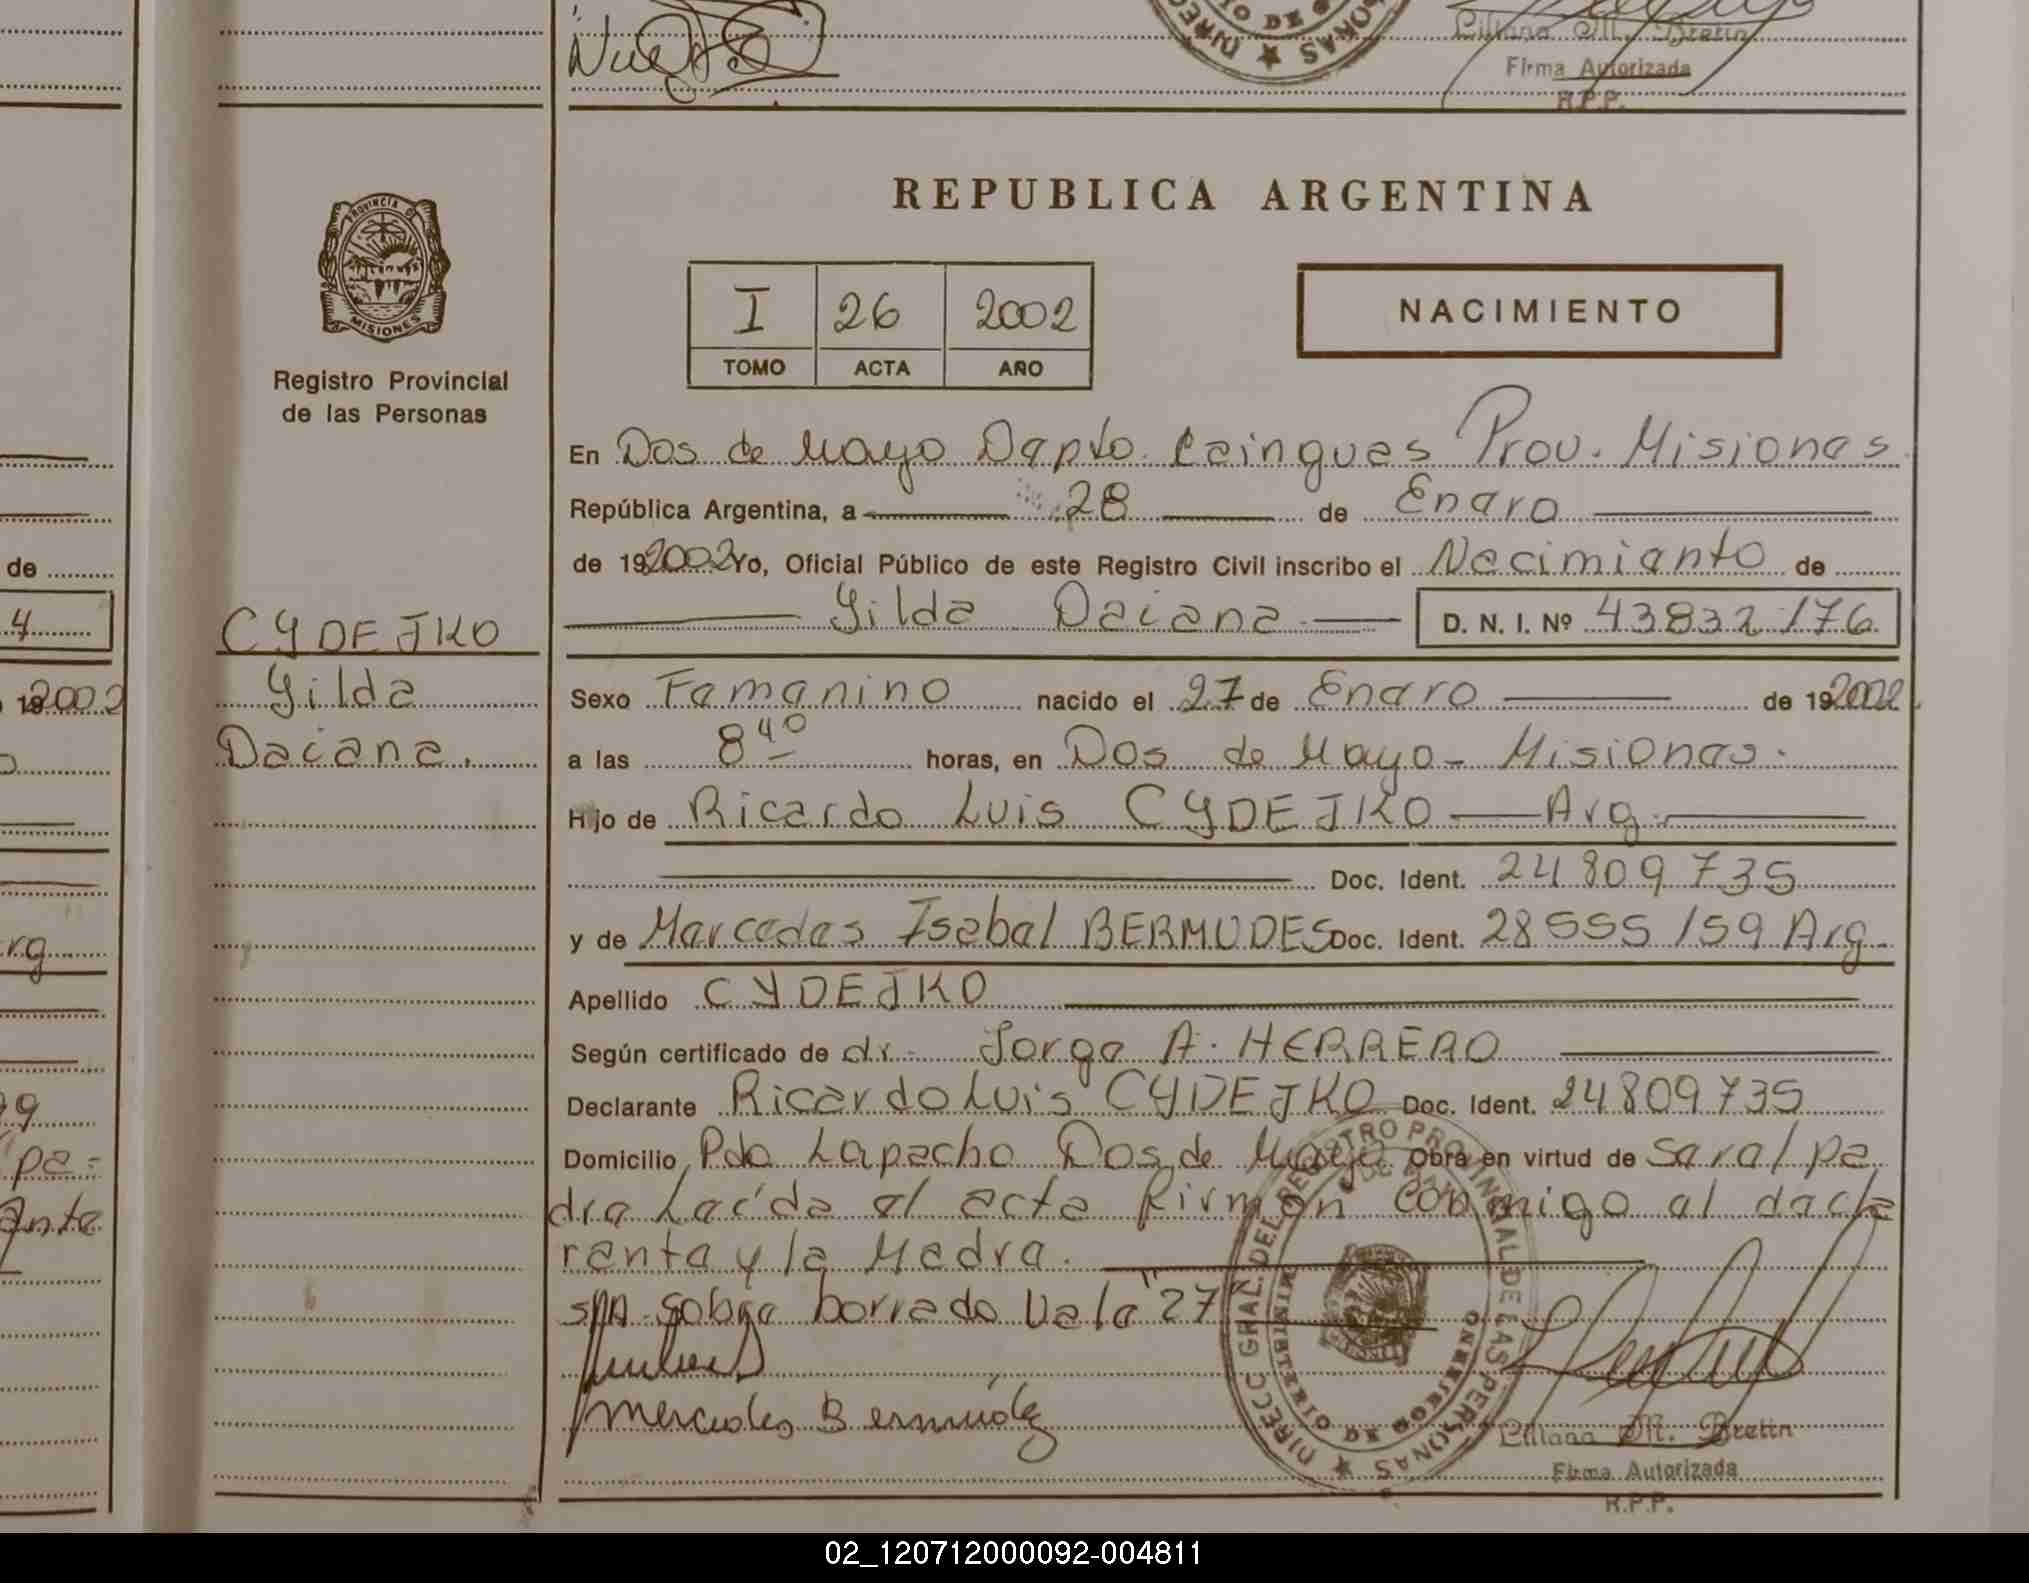 Liliana M. Bretin
Firma Autorizada
R.P.P.
PROVINCIA DE
MISIONES
Registro Provincial
de las Personas
CYDEJKO
Gilda
Daiana.
REPUBLICA ARGENTINA
I 26 2002
TOMO ACTA AÑO
NACIMIENTO
En Dos de Mayo Dapto. Cainguas Prov. Misiones
República Argentina, a 28 de Enero
de 192002 Yo, Oficial Público de este Registro Civil inscribo el Nacimiento de
Gilda Daiana D. N. I. Nº 43832176
Sexo Femenino nacido el 27 de Enero de 192002
a las 8 40 horas, en Dos de Mayo - Misiones.
Hijo de Ricardo Luis CYDEJKO Arg.
Doc. Ident. 24809735
y de Mercedes Isabel BERMUDES Doc. Ident. 28555159 Arg.
Apellido CYDEJKO
Según certificado de dr. Jorge A. HERRERO
Declarante Ricardo Luis CYDEJKO Doc. Ident. 24809735
Domicilio Pdo Lapacho Dos de Mayo Obra en virtud de ser el pa
dre Leída el acta firman conmigo el decla
rente y la Madre.
S/A Sobre borrado Vale "27
Mercedes Bermúdez
DIRECC GRAL. DEL REGISTRO PROVINCIAL DE LAS PERSONAS
MINISTERIO DE GOBIERNO
Liliana M. Bretin
Firma Autorizada
R.P.P.
de
4
192002
rg
pa-
ante
02_120712000092-004811